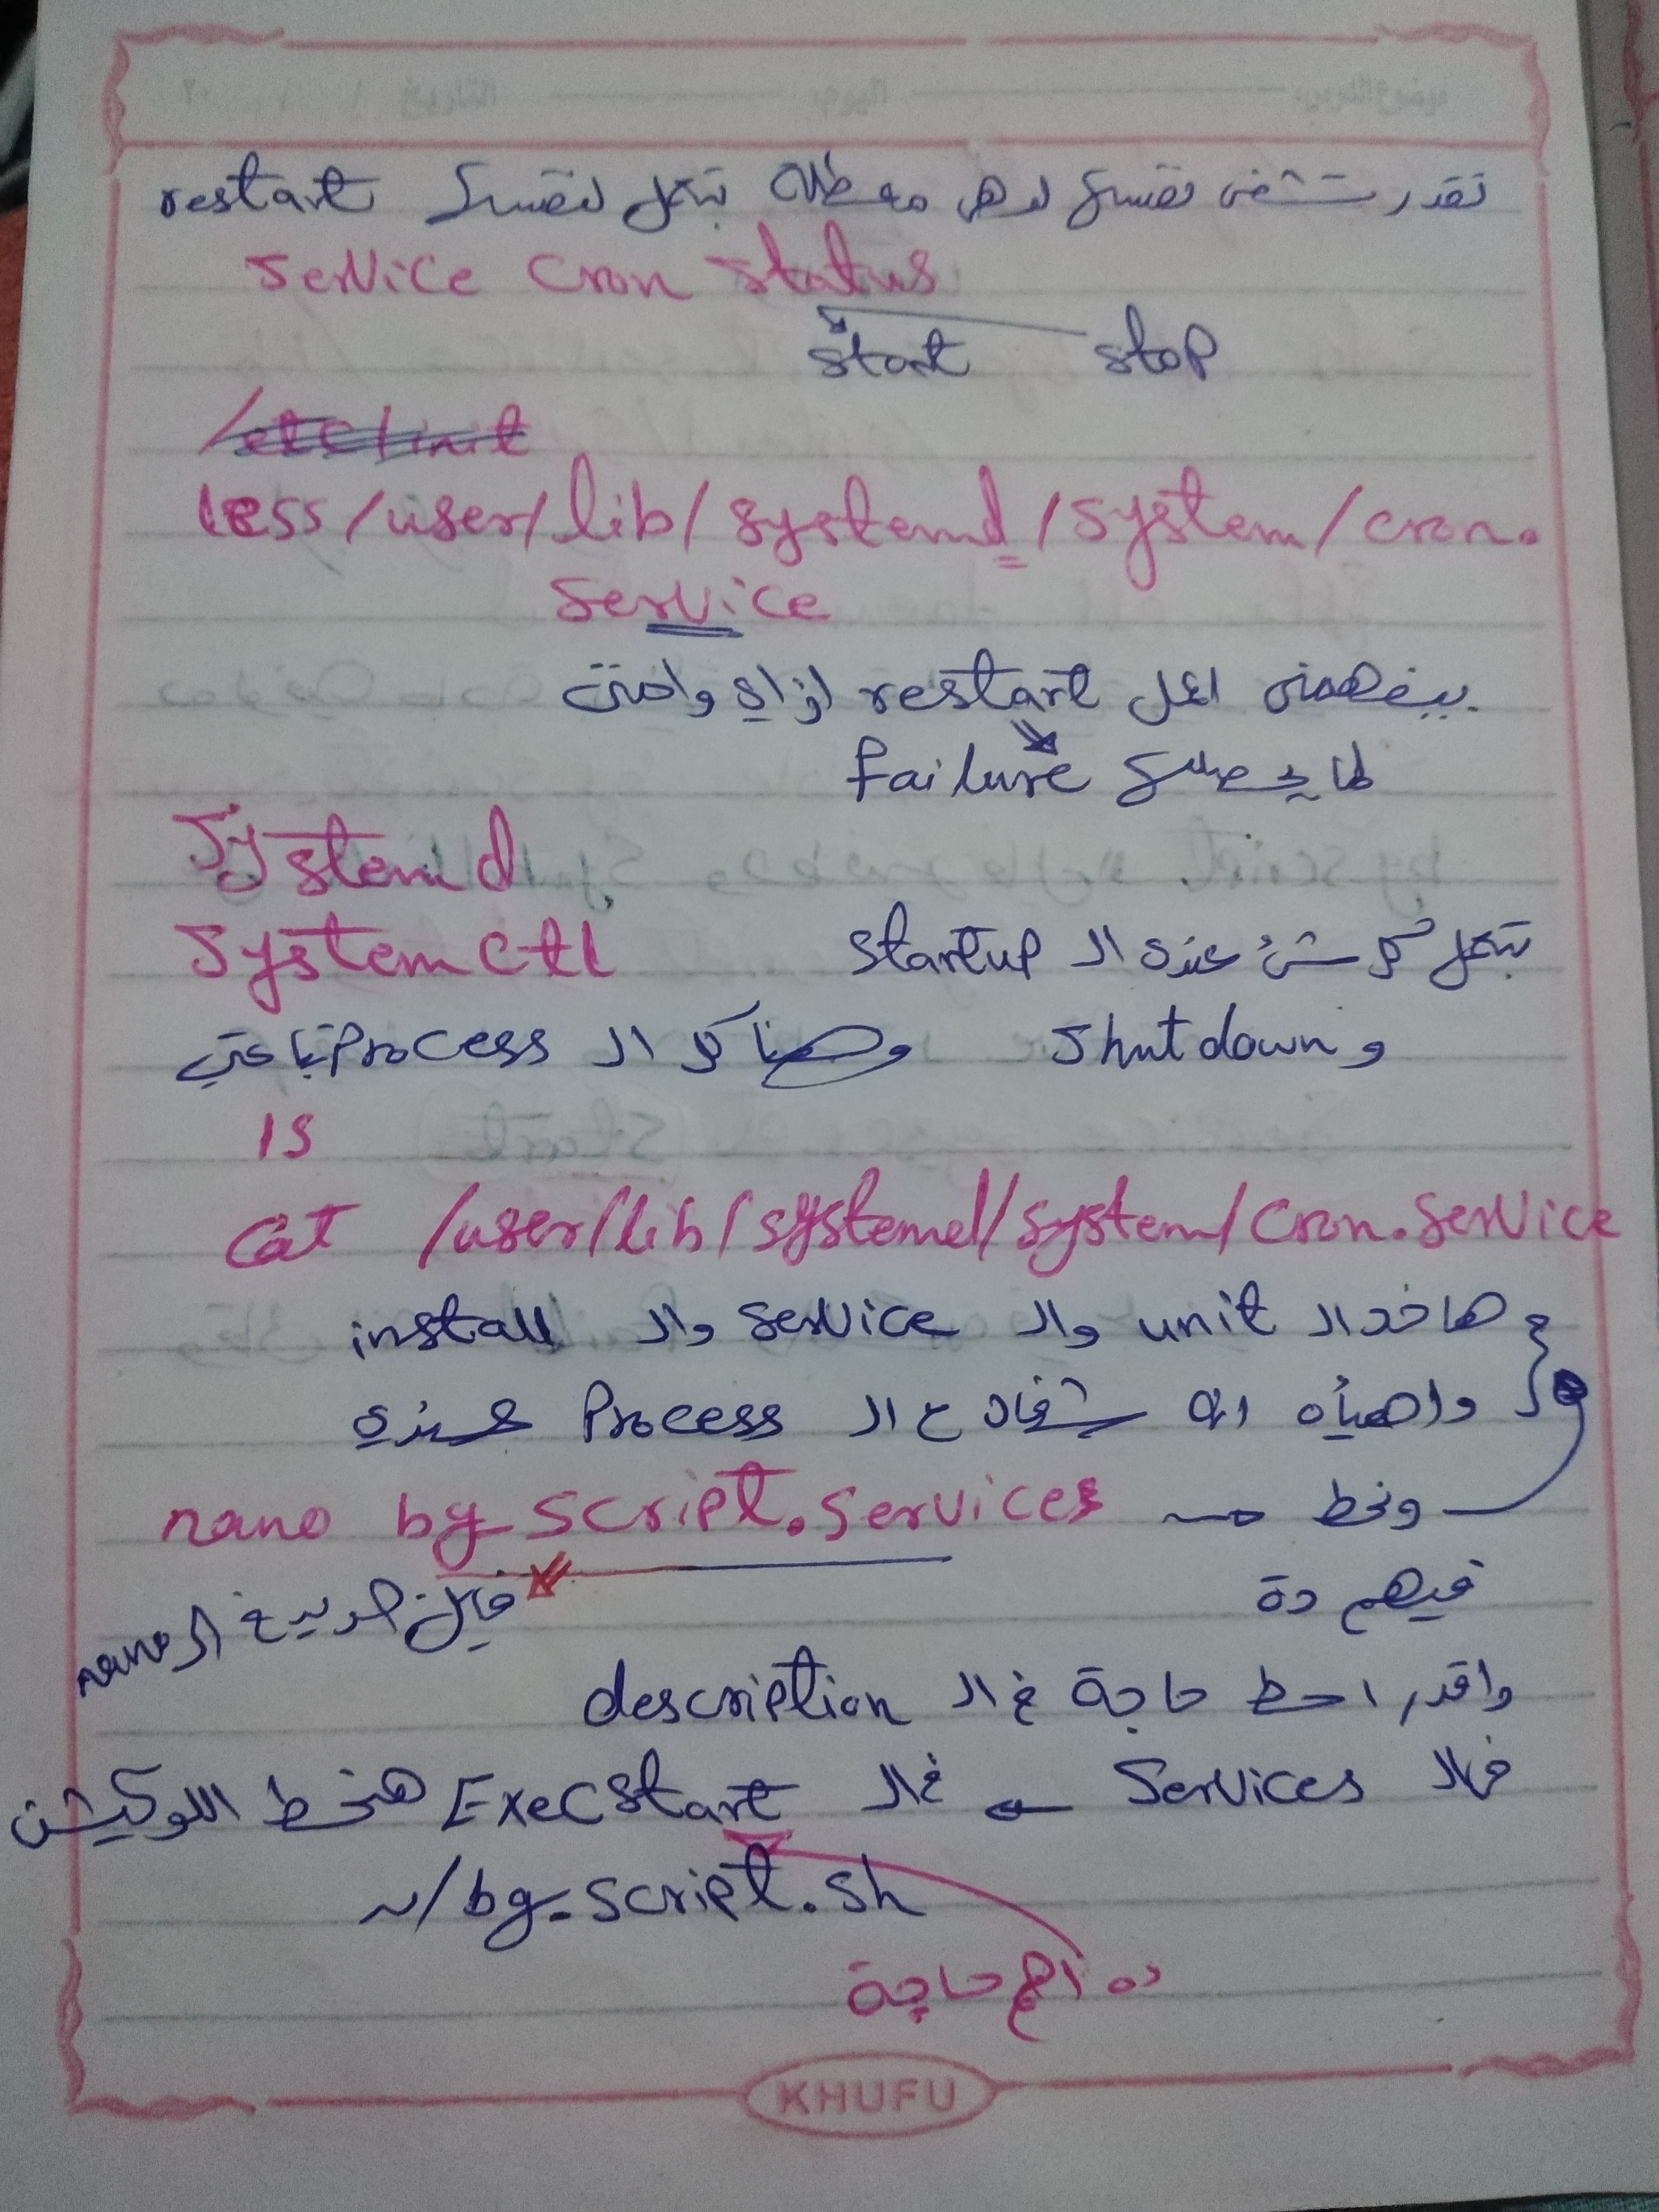 تقدر تشغل نفسها لوهى معطلة بتعمل لنفسها restart
service cron status
start stop
/etc/init
less /user/lib/systemd/system/cron.
service
بيفهمنى اعمل restart ازاى وامتى
لما يحصلها failure
systemd
systemctl بتعمل كل شئ عنده ال startup
و shutdown وهنا كل ال process بتاعتى
ls
cat /user/lib/systemd/system/cron.service
هاخد ال unit وال service وال install
واهيأه انه شغال ع ال process عنده
nano by_script.services ونحط
فيهم دة
فايل جديد ف ال nano
واقدر احط حاجة ف ال description
فال services ف ال ExecStart هنحط اللوكيشن
~/bg_script.sh
ده اهم حاجة
KHUFU